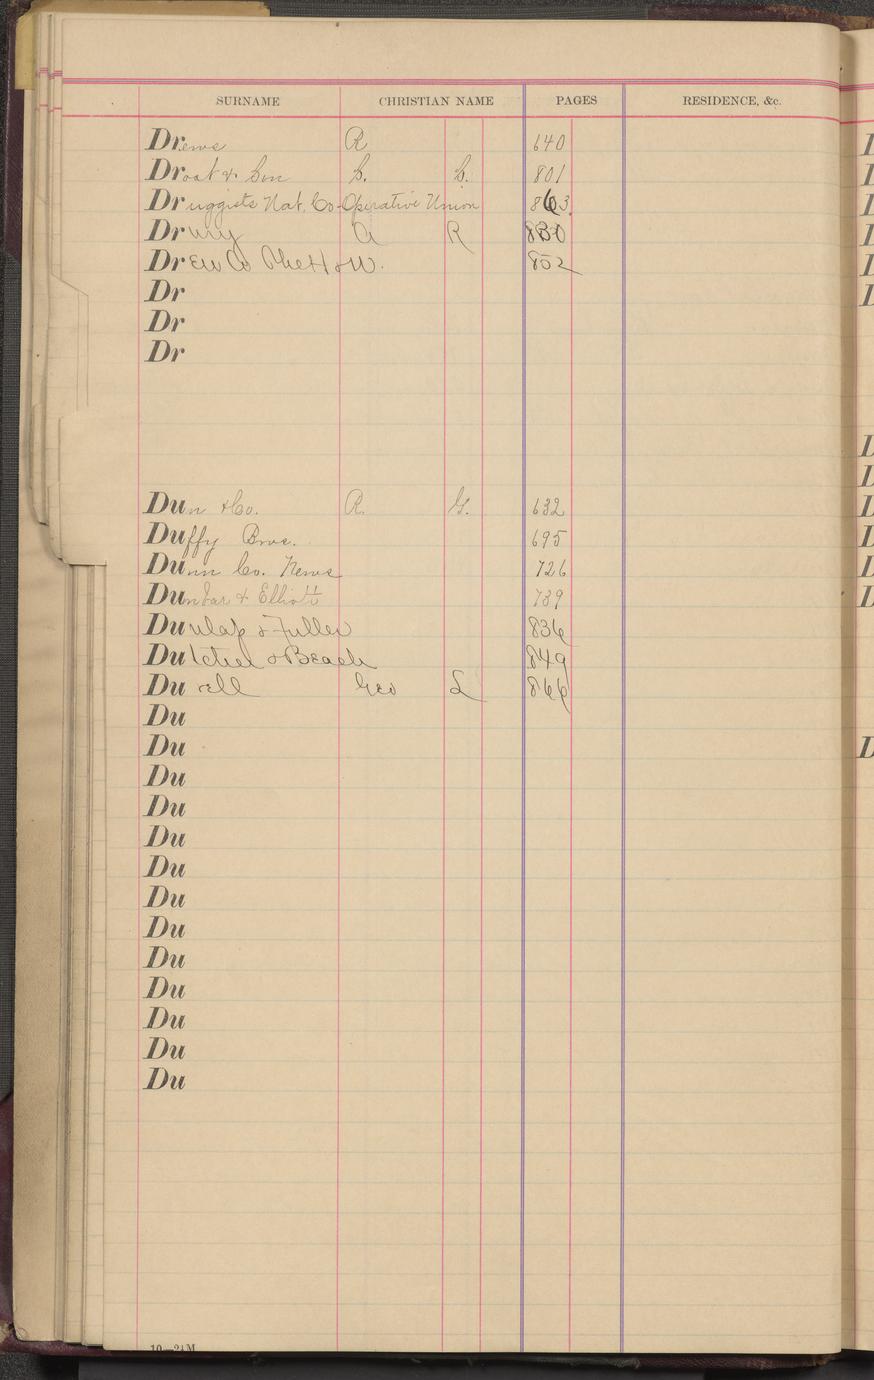 SURNAME CHRISTIAN NAME PAGES RESIDENCE, &c.
Drews R 640
Droat & Son C. C. 801
Druggists Nat. Co-Operative Union 863
Drury A R 830
Drew Co H & W. 852
Dr
Dr
Dr
Dun & Co. R. G. 632
Duffy Bros. 695
Dunn Co. News 726
Dunbar & Elliott 739
Dunlap & Fuller 836
Dutcher & Beach 849
Durell Geo L 866
Du
Du
Du
Du
Du
Du
Du
Du
Du
Du
Du
Du
Du
10—21M